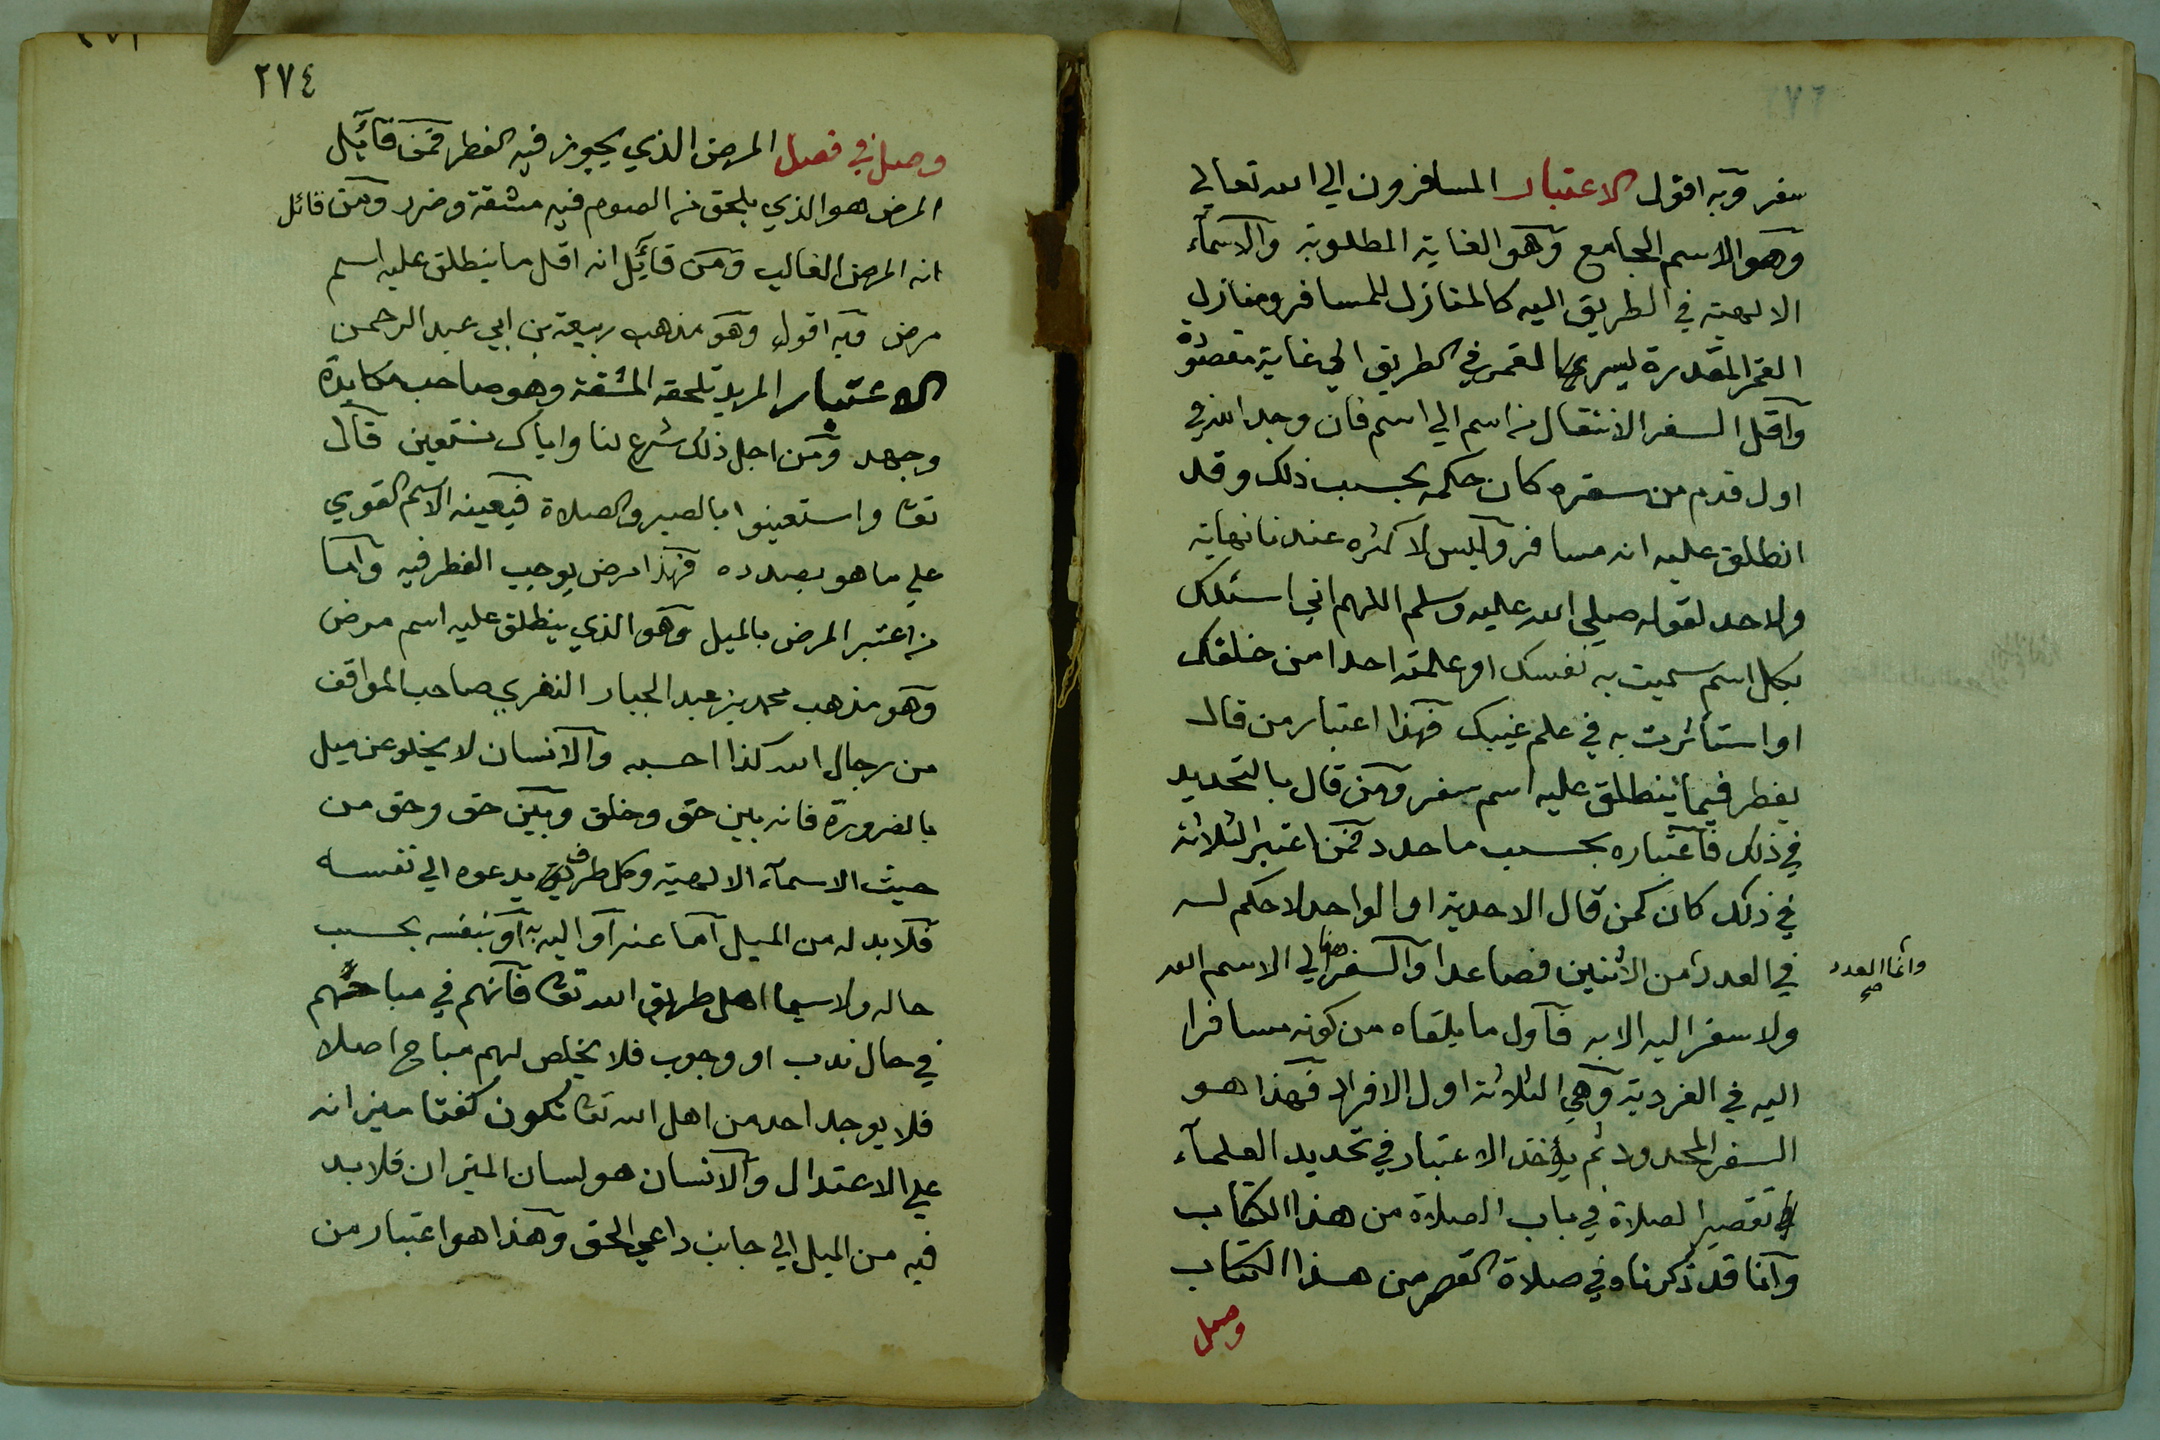 سفر وبه اقول الاعتبار المسافرون الي الله تعالي
وهو الاسم الجامع وهو الغاية المطلوبة والاسمآء
الالهية في الطريق اليه كالمنازل للمسافر ومنازل
القمر المقدرة ليسري القمر في الطريق الي غاية مقصودة
واقل السفر الانتقال من اسم الي اسم فان وجد الله في
اول قدم من سفره كان حكمه بحسب ذلك وقد
انطلق عليه انه مسافر وليس لاكثره عندنا نهاية
ولا حد لقوله صلي الله عليه وسلم اللهم اني اسئلك
بكل اسم سميت به نفسك او علمته احدا من خلقك
او استاثرت به في علم غيبك فهذا اعتبار من قال
يفطر فيما ينطلق عليه اسم سفر ومن قال بالتحديد
في ذلك فاعتباره بحسب ما حدد فمن اعتبر الثلاثة
في ذلك كان كمن قال الاحدية او الواحد لا حكم له
في العدد من الاثنين فصاعدا والسفر هنا الي الاسم الله
وانما العدد صح
ولا سفر اليه الا به فاول ما يلقاه من كونه مسافرا
اليه في الفردية وهي الثلاثة اول الافراد فهذا هو
السفر المحدود ثم يؤخذ الاعتبار في تحديد العلمآء
في تقصير الصلاة في باب الصلاة من هذا الكتاب
وانا قد ذكرناه في صلاة القصر من هذا الكتاب
وصل
٢٧٤
وصل في فصل المرض الذي يجوز فيه الفطر فمن قآئل
المرض هو الذي يلحق من الصوم فيه مشقة وضرر ومن قائل
انه المرض الغالب ومن قآئل انه اقل ما ينطلق عليه اسم
مرض وبه اقول وهو مذهب ربيعة بن ابي عبد الرحمن
الاعتبار المريد تلحقه المشقة وهو صاحب مكابدة
وجهد ومن اجل ذلك شرع لنا واياك نستعين قال
تعا واستعينوا بالصبر والصلاة فيعينه الاسم القوي
علي ما هو بصدده فهذا مرض يوجب الفطر فيه واما
من اعتبر المرض بالميل وهو الذي ينطلق عليه اسم مرض
وهو مذهب محمد بن عبد الجبار النفري صاحب المواقف
من رجال الله كذا احسبه والانسان لا يخلو عن ميل
بالضرورة فانه بين حق وخلق وبين حق وحق من
حيث الاسمآء الالهية وكل طرف يدعوه الي نفسه
فلا بد له من الميل اما عنه او اليه به او بنفسه بحسب
حاله ولا سيما اهل طريق الله تعا فانهم في مباحهم
في حال ندب او وجوب فلا يخلص لهم مباح اصلا
فلا يوجد احد من اهل الله تعا تكون كفتا ميزانه
علي الاعتدال والانسان هو لسان الميزان فلا بد
فيه من الميل الي جانب داعي الحق وهذا هو اعتبار من